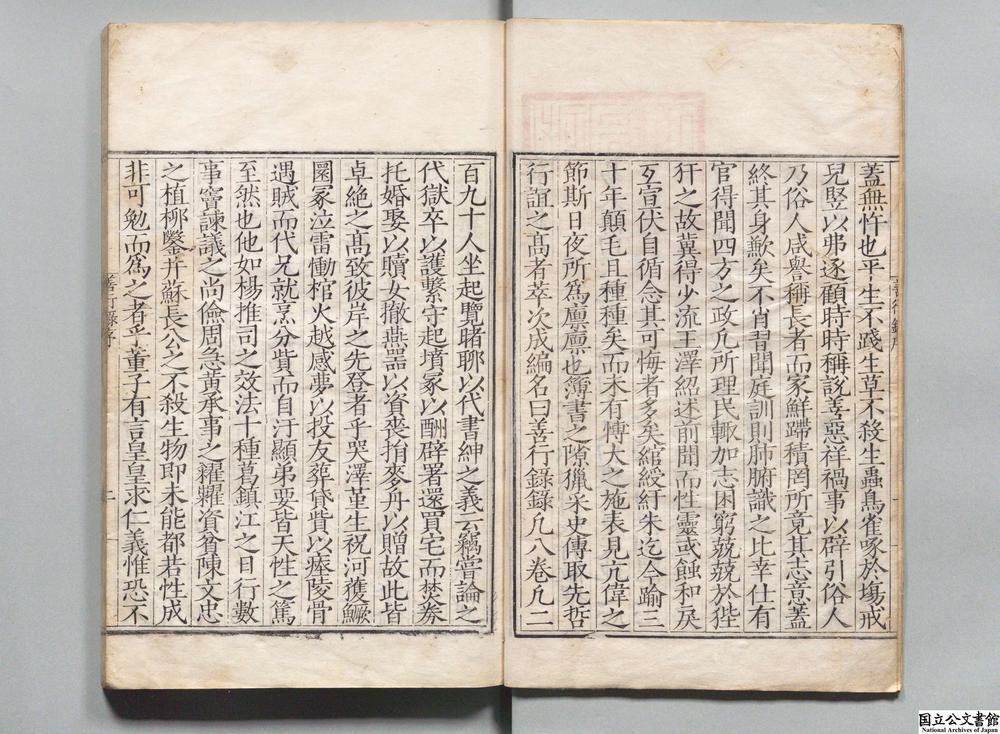 蓋無忤也平生不踐生草不殺生蟲鳥雀啄於場戒
兒豎以弗逐顧時時稱說善惡祥禍事以辟引俗人
乃俗人咸譽稱長者而家鮮蹛積罔所竟其志意蓋
終其身歉矣不肖習聞庭訓則肺腑識之比幸仕有
官得聞四方之政凡所理民輒加志困窮兢兢於狴
犴之故冀得少流王澤紹述前聞而性靈或蝕和戾
互宣伏自循念其可悔者多矣綰綬紆朱迄今踰三
十年顛毛且種種矣而未有博大之施表見亢偉之
節斯日夜所為廩廩也簿書之隙獵采史傳取先哲
行誼之高者萃次成編名曰善行錄錄凡八卷凡二
百九十人坐起覽睹聊以代書紳之義云竊嘗論之
代獄卒以護繫守起墳冢以酬辟署還買宅而焚券
托婚娶以贖女撤燕器以資喪捐麥舟以贈故此皆
卓絕之高致彼岸之先登者乎哭澤堇生祝河獲鱖
圜冢泣雷慟棺火越感夢以投友葬貸貲以瘞陵骨
遇賊而代兄就烹分貲而自汙顯弟要皆天性之篤
至然也他如楊推司之效法十種葛鎮江之日行數
事竇諫議之尚儉周急黃承事之糴糶資貧陳文忠
之植柳鑿井蘇長公之不殺生物即未能都若性成
非可勉而為之者乎董子有言皇皇求仁義惟恐不
善行錄序
一
善行錄序
二
国立公文書館
National Archives of Japan